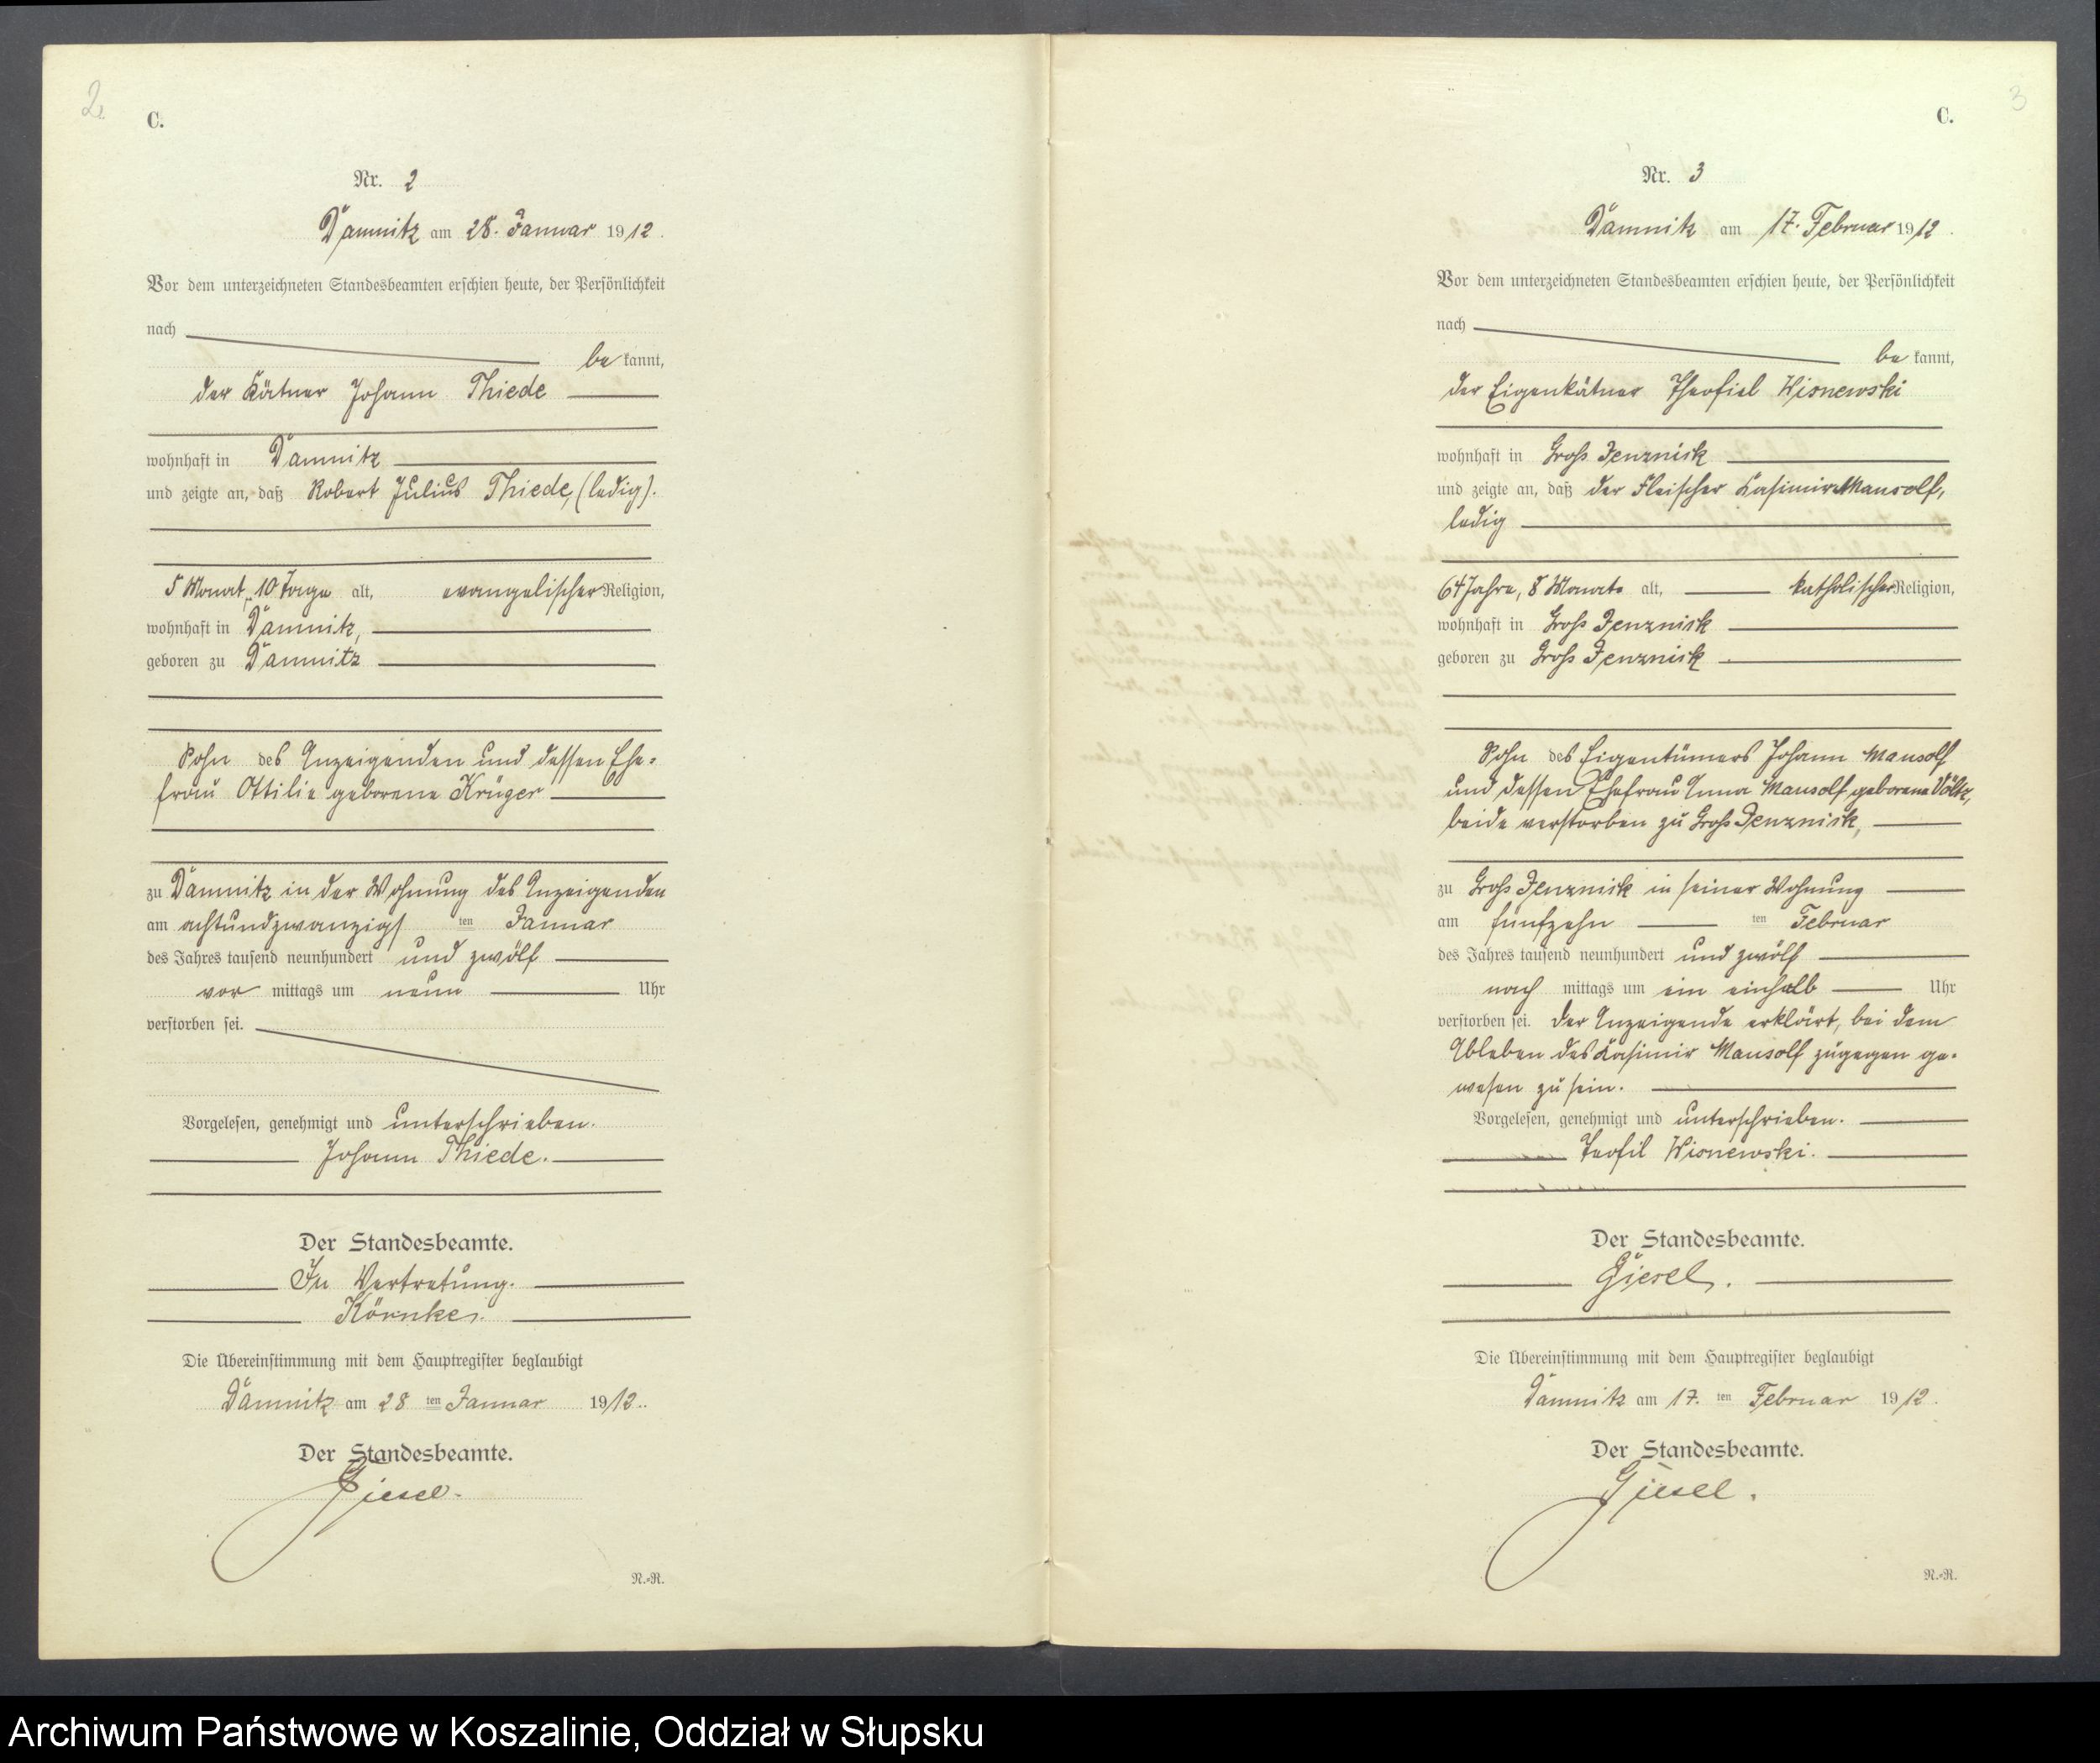 2.
C.
Nr. 2
Damnitz am 28. Januar 1912.
Vor dem unterzeichneten Standesbeamten erschien heute, der Persönlichkeit
nach
be kannt,
der Kätner Johann Thiede
wohnhaft in Damnitz
und zeigte an, daß Robert Julius Thiede, (ledig).
5 Monat, 10 Tage alt, evangelischer Religion,
wohnhaft in Damnitz,
geboren zu Damnitz
Sohn des Anzeigenden und dessen Ehe=
frau Ottilie geborene Krüger
zu Damnitz in der Wohnung des Anzeigenden
am achtundzwanzigs ten Januar
des Jahres tausend neunhundert und zwölf
vor mittags um neun Uhr
verstorben sei.
Vorgelesen, genehmigt und unterschrieben.
Johann Thiede.
Der Standesbeamte.
In Vertretung.
Körnke.
Die Übereinstimmung mit dem Hauptregister beglaubigt
Damnitz am 28 ten Januar 1912.
Der Standesbeamte.
Giesel.
N.=R.
3
C.
Nr. 3
Damnitz am 17. Februar 1912.
Vor dem unterzeichneten Standesbeamten erschien heute, der Persönlichkeit
nach
be kannt,
der Eigenkätner Theofiel Wisnewski
wohnhaft in Groß Jenznick
und zeigte an, daß der Fleischer Kasimir Mansolf,
ledig
64 Jahre, 8 Monate alt, katholischer Religion,
wohnhaft in Groß Jenznick
geboren zu Groß Jenznick
Sohn des Eigentümers Johann Mansolf
und dessen Ehefrau Anna Mansolf geborene Völtz,
beide verstorben zu Groß Jenznick,
zu Groß Jenznick in seiner Wohnung
am fünfzehn ten Februar
des Jahres tausend neunhundert und zwölf
nach mittags um ein einhalb Uhr
verstorben sei. Der Anzeigende erklärt, bei dem
Ableben des Kasimir Mansolf zugegen ge=
wesen zu sein.
Vorgelesen, genehmigt und unterschrieben.
Teofil Wisnewski.
Der Standesbeamte.
Giesel.
Die Übereinstimmung mit dem Hauptregister beglaubigt
Damnitz am 17. ten Februar 1912.
Der Standesbeamte.
Giesel.
N.=R.
Archiwum Państwowe w Koszalinie, Oddział w Słupsku